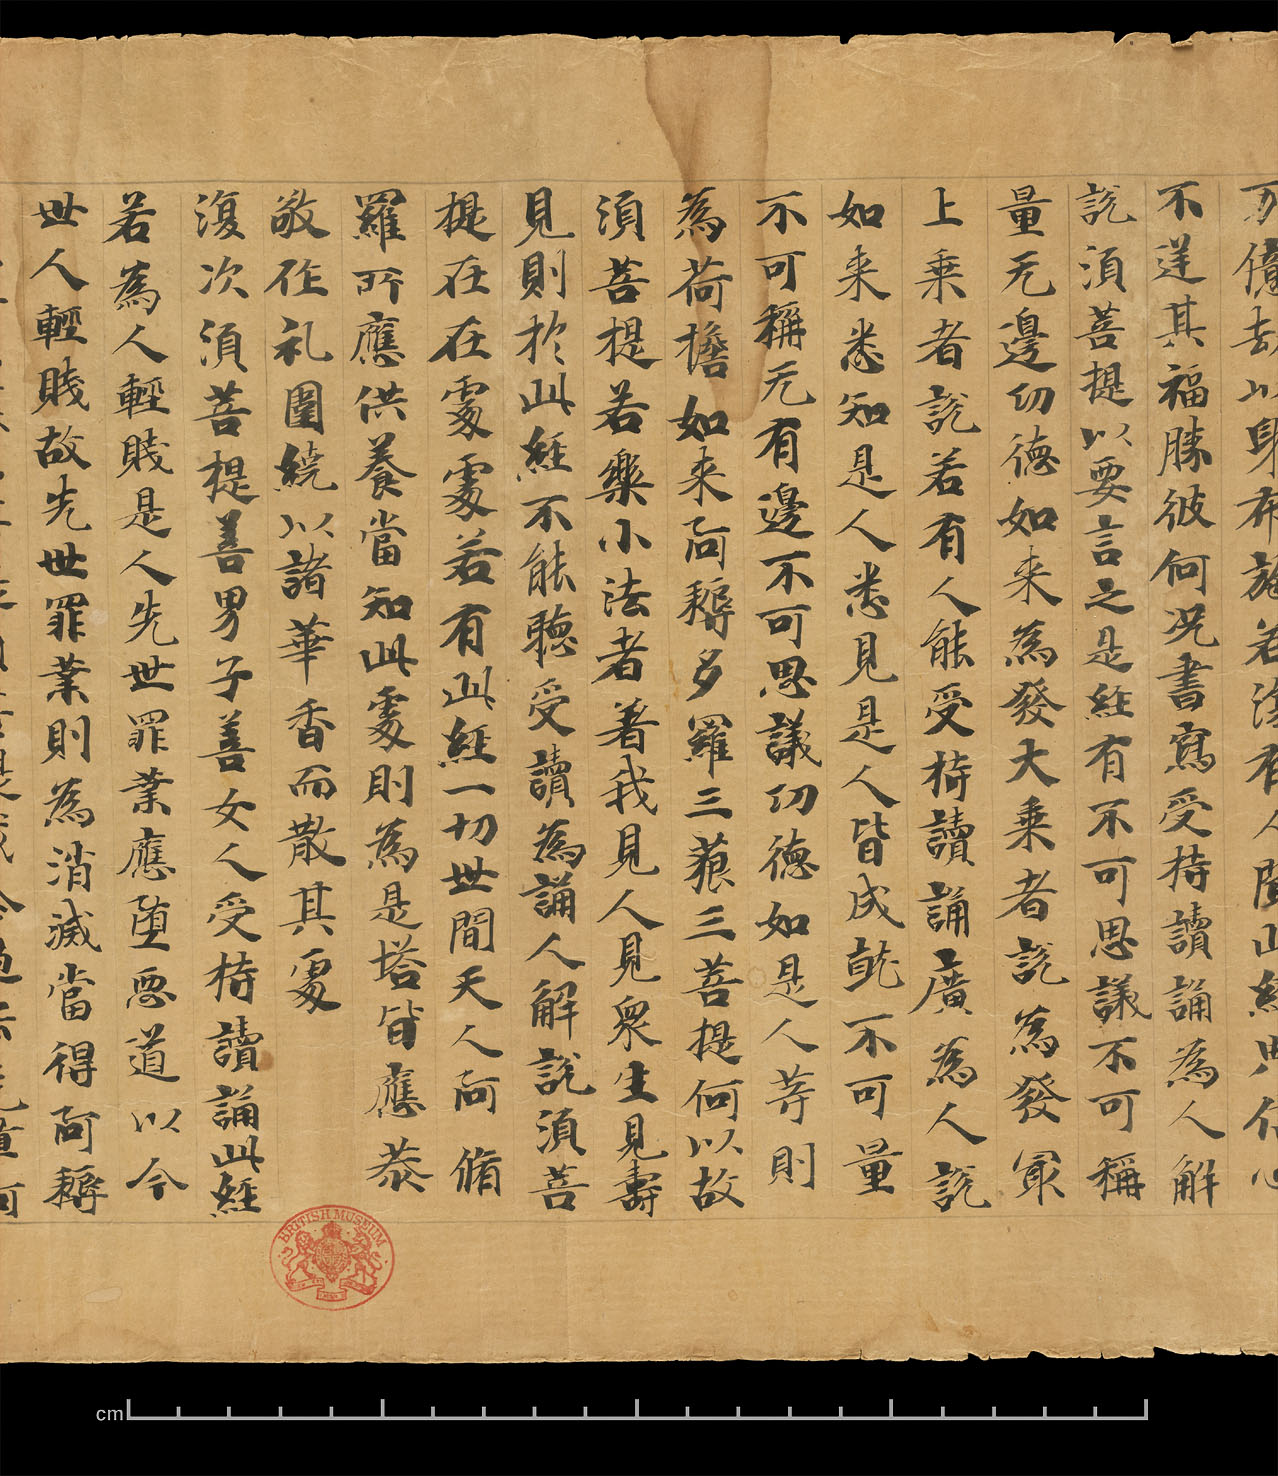 万億劫以身布施若復有人聞此經典信心
不逆其福勝彼何況書寫受持讀誦為人解
說須菩提以要言之是經有不可思議不可稱
量无邊功德如来為發大乗者說為發冣
上乗者說若有人能受持讀誦廣為人說
如来悉知是人悉見是人皆成就不可量
不可稱无有邊不可思議功德如是人等則
為荷擔如来阿耨多羅三藐三菩提何以故
須菩提若樂小法者著我見人見衆生見壽
見則於此經不能聴受讀為誦人解說須菩
提在在處處若有此經一切世間天人阿脩
羅所應供養當知此處則為是塔皆應恭
敬作礼圍繞以諸華香而散其處
復次須菩提善男子善女人受持讀誦此經
若為人輕賤是人先世罪業應墮惡道以今
世人輕賤故先世罪業則為消滅當得阿耨
BRITISH MUSEUM
cm